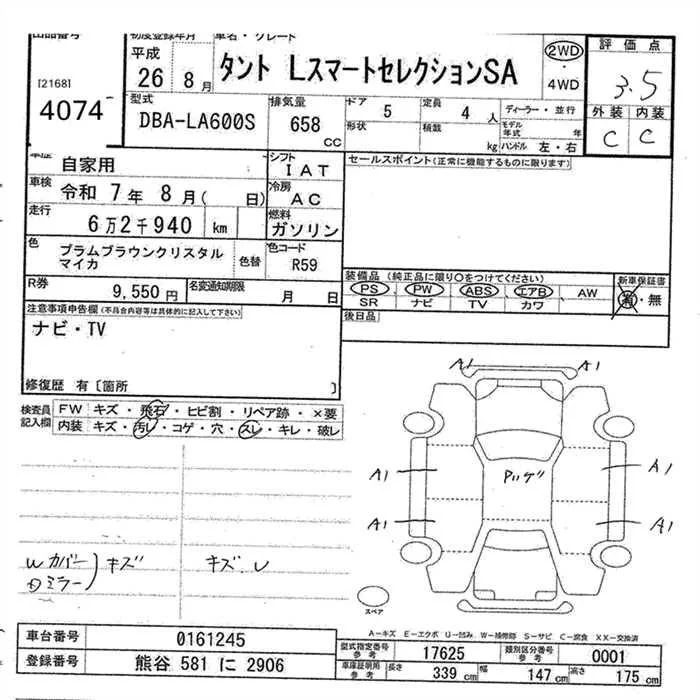 出品番号
初度登録年月
車名・グレード
評価点
[2168]
4074
平成
26 8月
タント LスマートセレクションSA
2WD
・
4WD
3.5
外装 内装
C C
型式
DBA-LA600S
排気量
658
CC
ドア
5
定員
4 人
形状
積載
kg
ディーラー・並行
モデル年式 年
ハンドル 左・右
車歴
自家用
シフト
IAT
セールスポイント(正常に機能するものに限ります)
車検
令和 7年 8月( 日)
冷房
AC
走行
6万2千940 km
燃料
ガソリン
色
プラムブラウンクリスタル
マイカ
色替
色コード
R59
R券
9,550円
名変通知期限
月 日
装備品(純正品に限り○をつけてください)
新車保証書
PS PW ABS エアB AW
SR ナビ TV カワ
有・無
注意事項申告欄(不具合内容等は具体的に記入して下さい)
後日品
ナビ・TV
修復歴 有〔箇所 〕
検査員
記入欄
FW キズ・飛石・ヒビ割・リペア跡・×要
内装 キズ・汚レ・コゲ・穴・スレ・キレ・破レ
A1 A1
A1 A1
A1 A1
Wカバー
ミラー
キズ
キズ・レ
スペア
A-キズ E-エクボ U-凹み W-補修跡 S-サビ C-腐食 XX-交換済
車台番号
0161245
型式指定番号
参考
17625
類別区分番号
参考
0001
登録番号
熊谷 581 に 2906
車庫証明用
参考
長さ
339 cm
幅
147 cm
高さ
175 cm